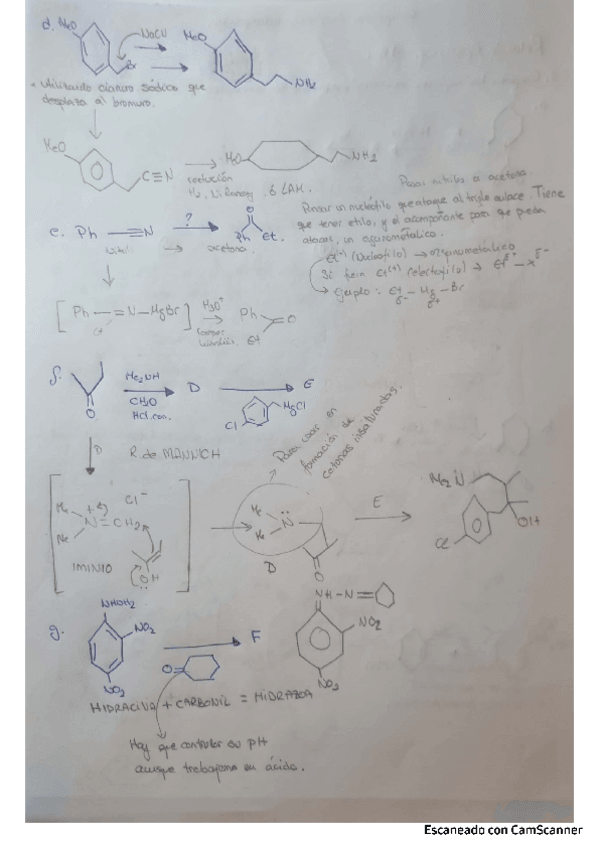 d. MeO
NaCN
Br
MeO
NH2
* Utilizando cianuro sódico que
desplaza al bromuro.
MeO
C≡N
reducción
H2, Ni Raney ó LAH.
NH2
Pasar nitrilo a acetona.
Pensar un nucleófilo que ataque al triple enlace. Tiene
que tener etilo, y el acompañante para que pueda
atacar, un organometálico.
e. Ph ≡N ? O Ph Et.
acetona
Et(-) (Nucleófilo) → organometálico
Si fuera Et(+) (electrófilo) → Et δ+ - X δ-
Ejemplo: Et - Mg - Br
δ- δ+
[ Ph =N-MgBr ] H3O+ Ph =O
Et
Et
f.
O
Me2NH
CH2O
HCl con.
D
Cl MgCl
E
R. de MANNICH
Para usar en
formación de
cetonas insaturadas.
Me
Me
N=CH2
Cl-
OH
IMINIO
Me
Me
N
O
D
E
Me2N
Cl
OH
g.
NO2
NO2
O=
F
NH-N=
NO2
NO2
HIDRACINA + CARBONIL = HIDRAZONA
Hay que controlar su pH
aunque trabajamos en ácido.
Escaneado con CamScanner